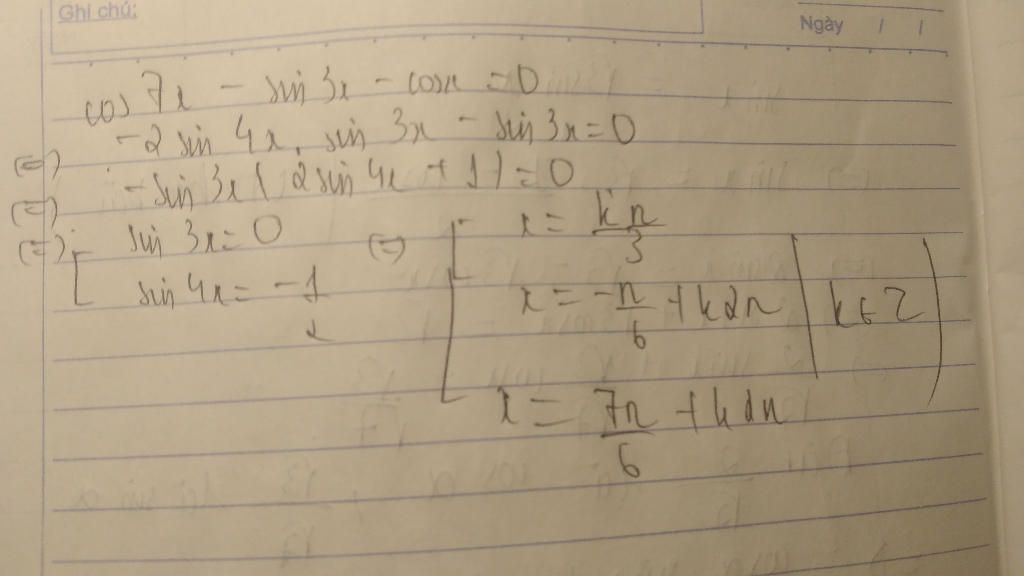 Ghi chú:
Ngày / /
cos 7x - sin 3x - cosx = 0
(=) -2 sin 4x. sin 3x - sin 3x = 0
(=) -sin 3x ( 2sin 4x + 1 ) = 0
(=) [ sin 3x = 0 (=) [ x = kπ/3
sin 4x = -1/2 x = -π/6 + k2π | k ∈ Z )
x = 7π/6 + k2π